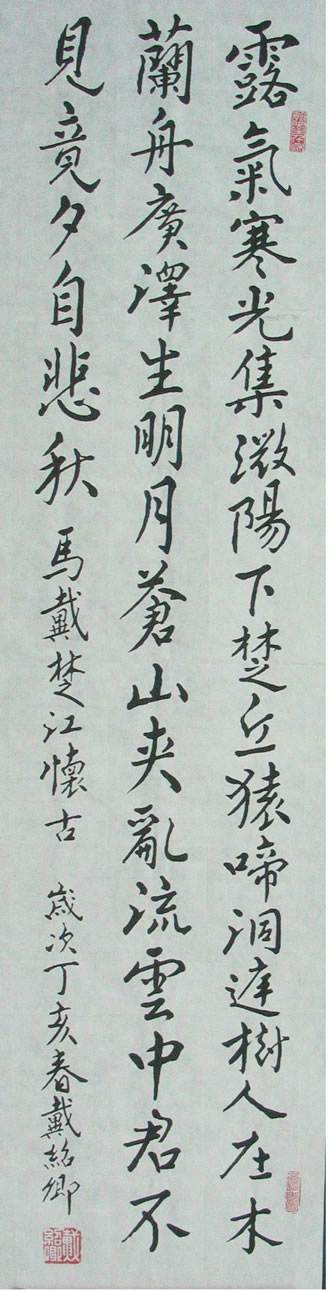 露氣寒光集微陽下楚丘猿啼洞庭樹人在木
蘭舟廣澤生明月蒼山夾亂流雲中君不
見竟夕自悲秋 馬戴楚江懷古 歲次丁亥春戴紹卿